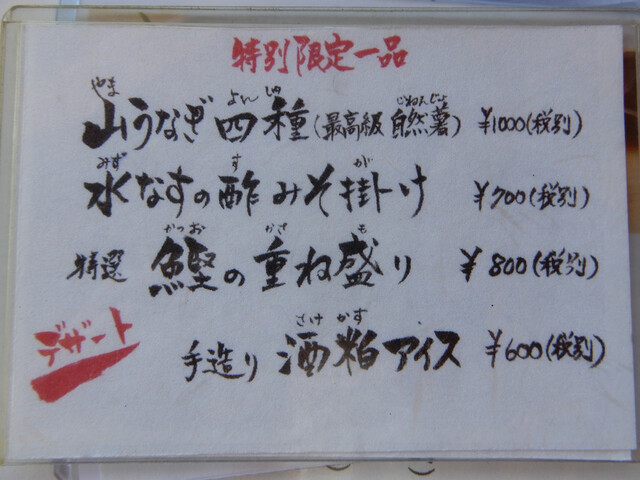 特別限定一品
やま よんしゅ じねんじょ
山うなぎ四種(最高級 自然薯) ¥1000(税別)
みず す が
水なすの酢みそ掛け ¥700(税別)
かつお かさ も
特選 鰹の重ね盛り ¥800(税別)
デザート
さけ かす
手造り 酒粕アイス ¥600(税別)